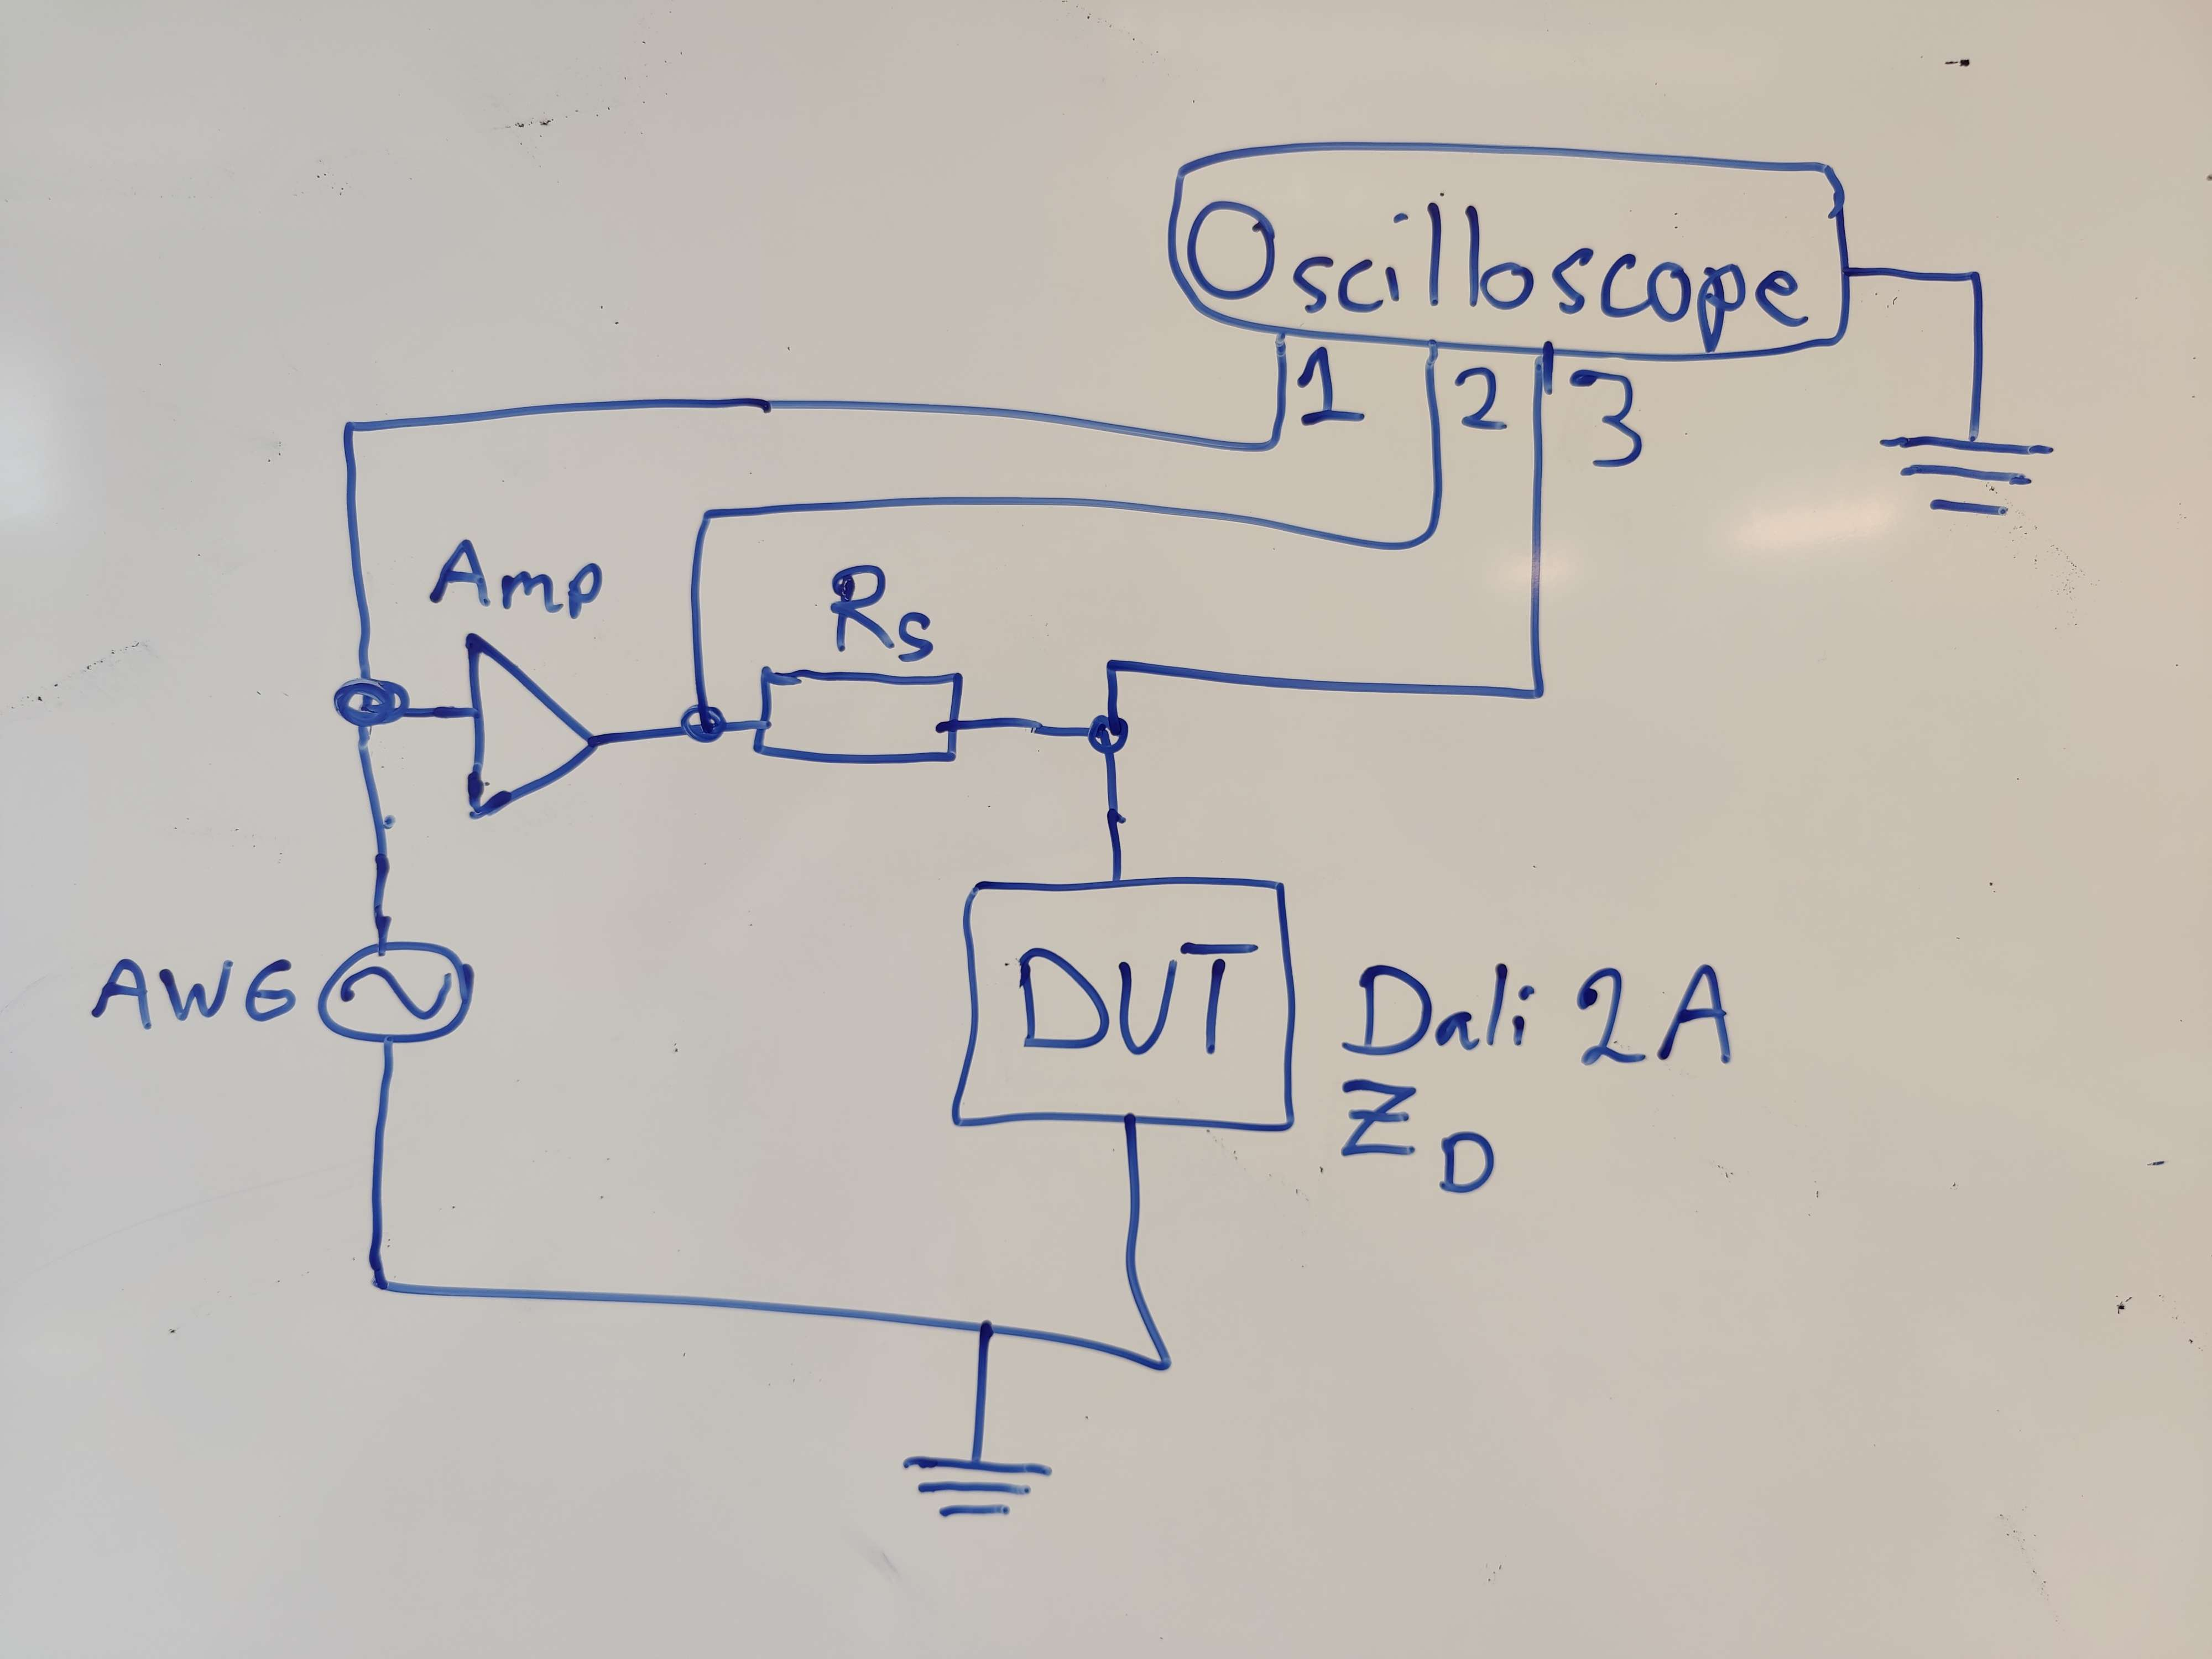 Oscilloscope
1 2 3
Amp
Rs
AWG
DUT
Dali 2A
ZD